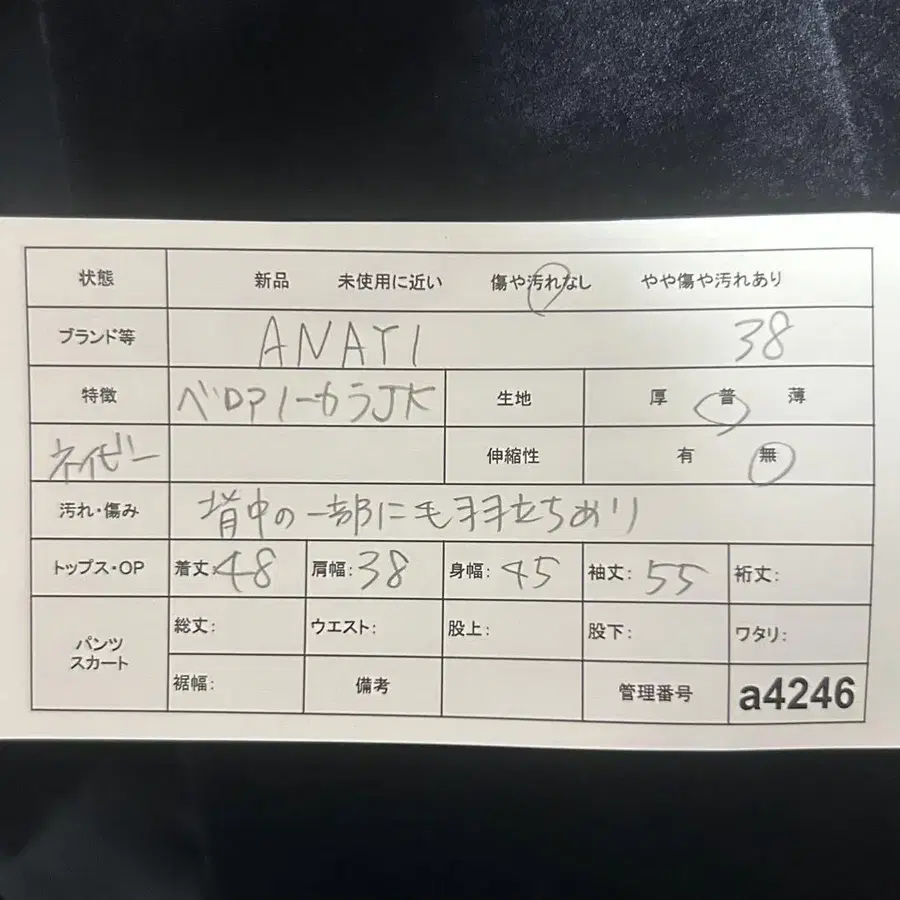 状態 新品 未使用に近い 傷や汚れなし やや傷や汚れあり
ブランド等 ANAYI 38
特徴 ベロアノーカラJK 生地 厚 普 薄
ネイビー 伸縮性 有 無
汚れ・傷み 背中の一部に毛羽立ちあり
トップス・OP 着丈:48 肩幅:38 身幅:45 袖丈:55 裄丈:
パンツ スカート 総丈: ウエスト: 股上: 股下: ワタリ:
裾幅: 備考 管理番号 a4246